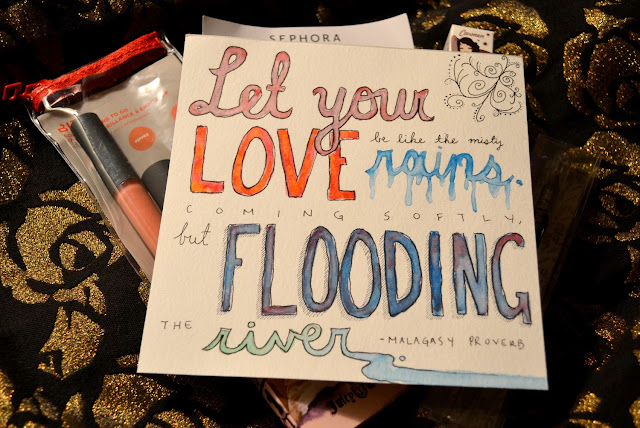 SEPHORA
Let your
LOVE be like the misty
rains.
COMING SOFTLY,
but FLOODING
THE river
-MALAGASY PROVERB